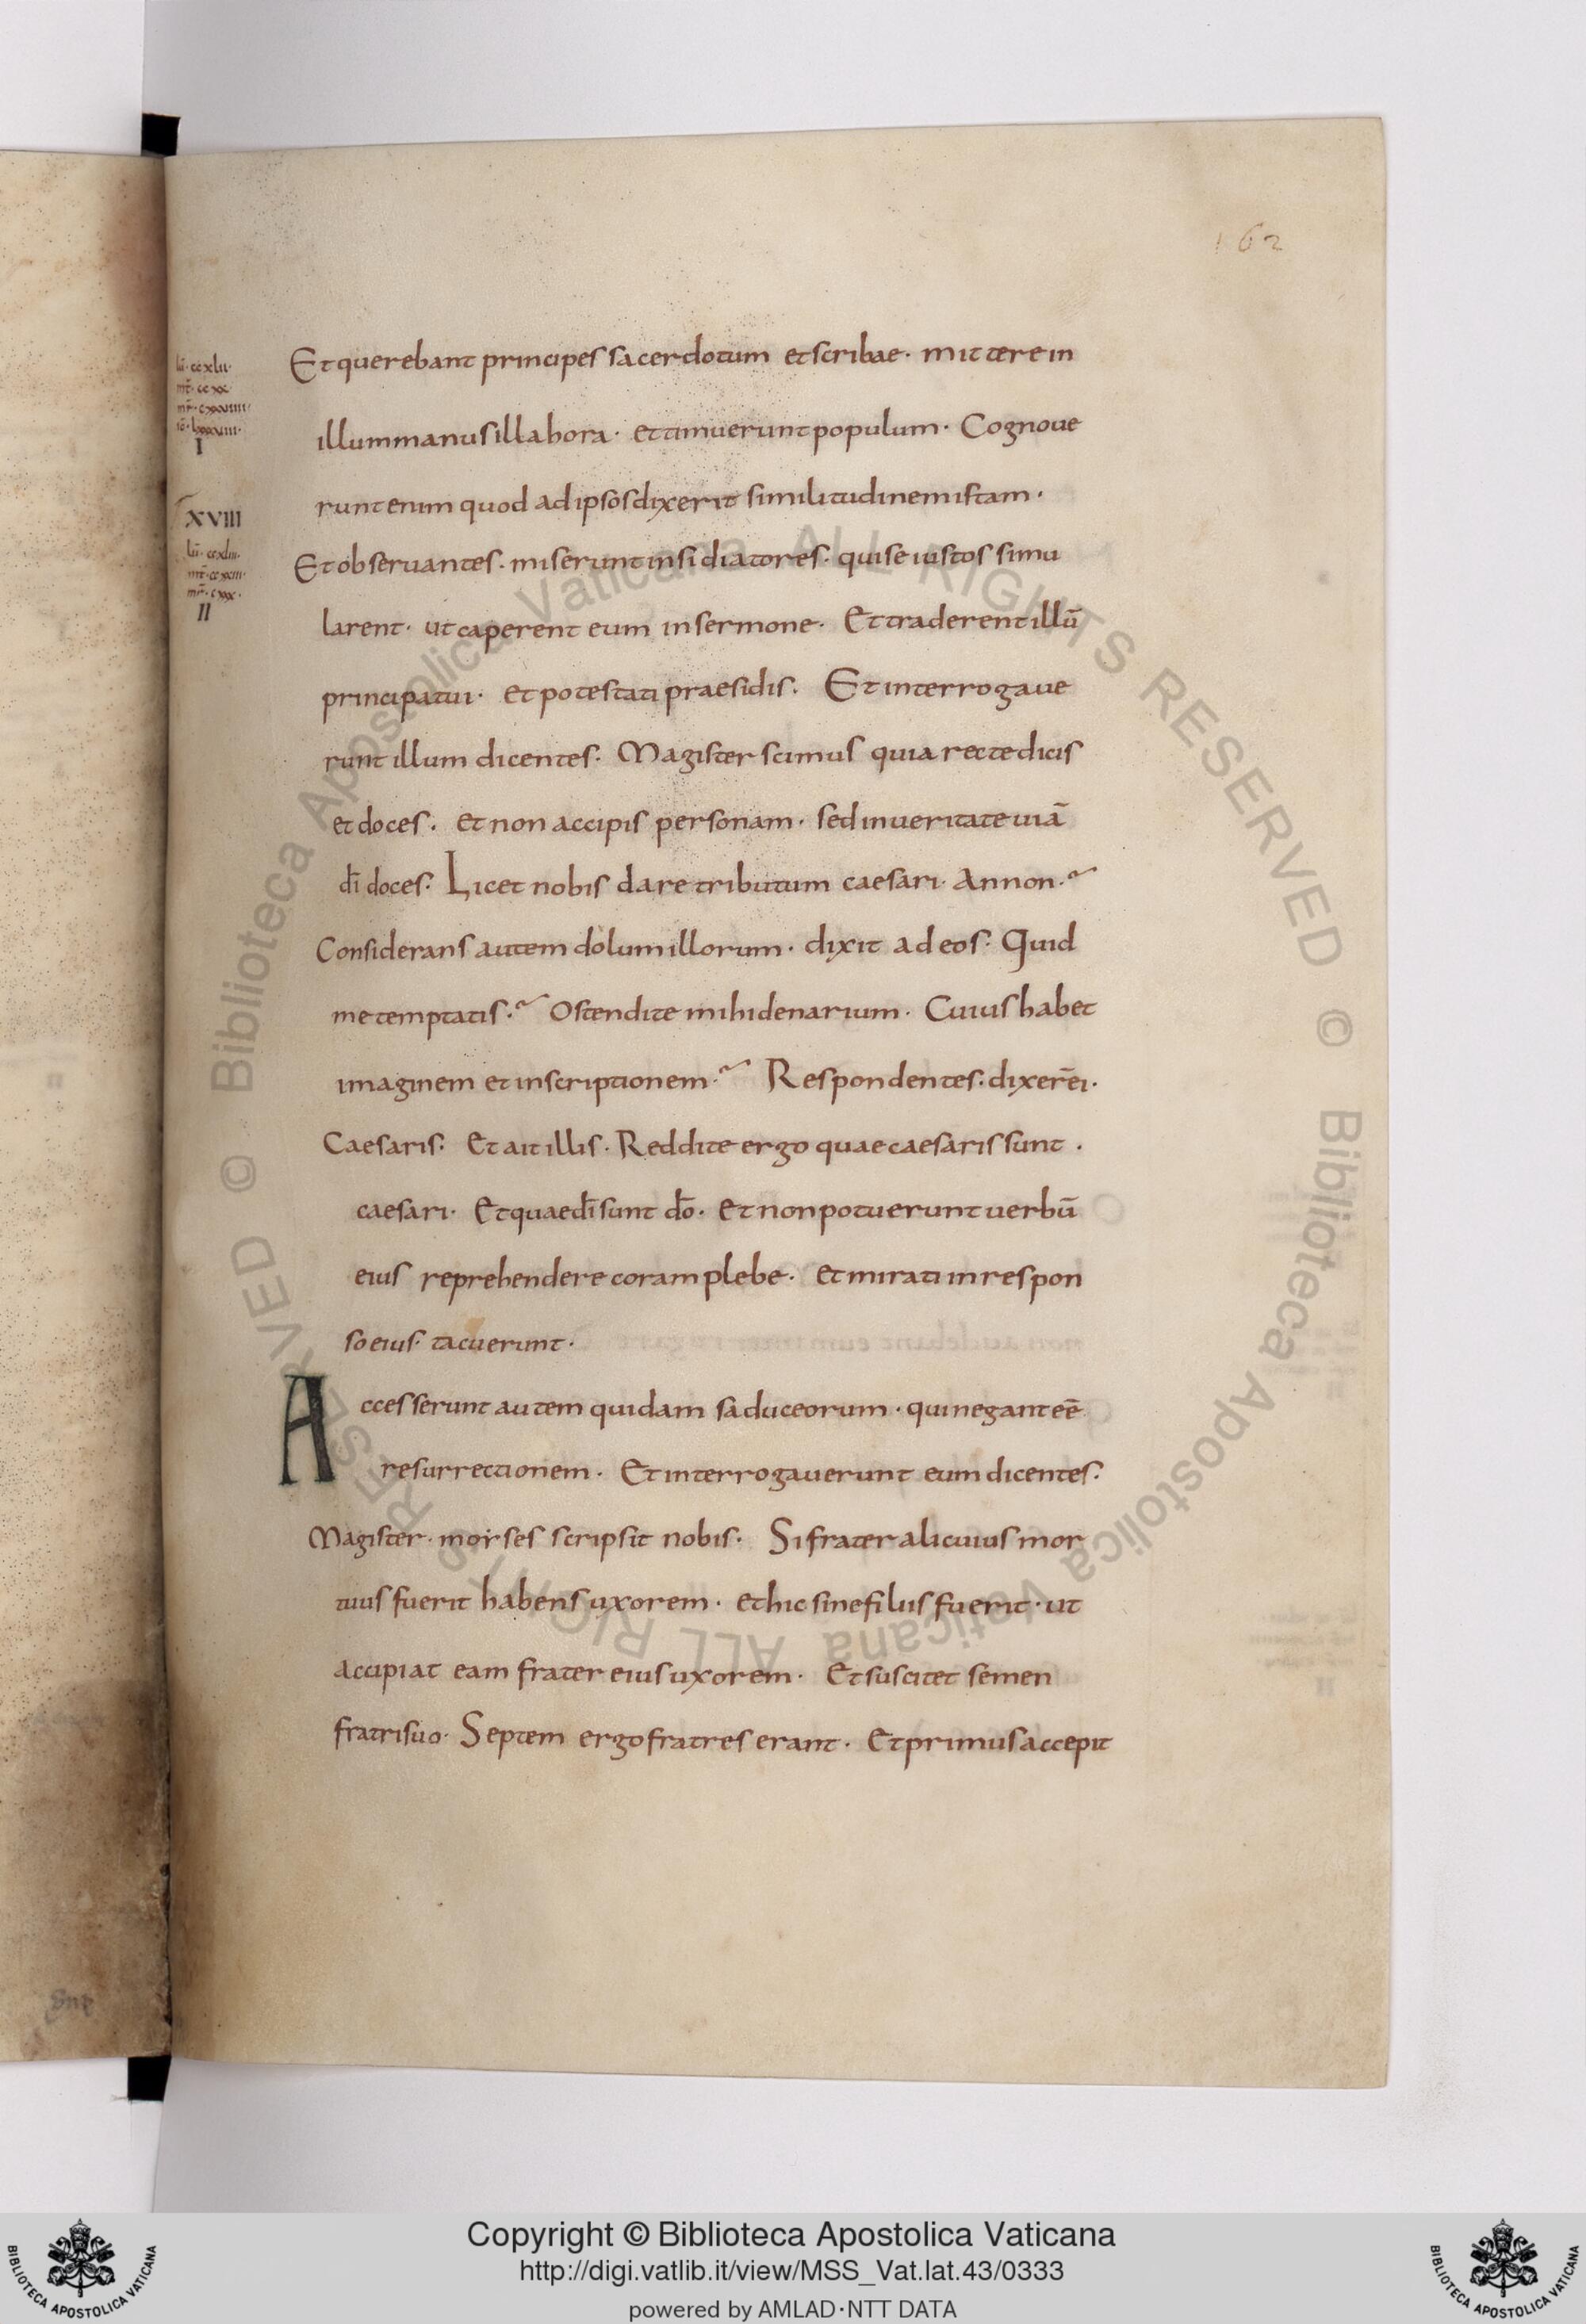 162
lū· ccxlii·
mt̄· ccxx·
mr̄· cxxviiii·
iō· lxxxviii·
I
Et querebant principes sacerdotum et scribae· mittere in
illum manus illa hora· et timuerunt populum· Cognoue
runt enim quod ad ipsos dixerit similitudinem istam·
XVIIII
lū· ccxliii·
mt̄· ccxxiii·
mr̄· cxxx·
II
Et obseruantes· miserunt insidiatores· qui se iustos simu
larent· ut caperent eum in sermone· Et traderent illū
principatui· et potestati praesidis· Et interrogaue
runt illum dicentes· Magister scimus quia recte dicis
et doces· et non accipis personam· sed in ueritate uiā
dī doces· Licet nobis dare tributum caesari· Annon·
Considerans autem dolum illorum· dixit ad eos· Quid
me temptatis· Ostendite mihi denarium· Cuius habet
imaginem et inscriptionem· Respondentes· dixer̄ ei·
Caesaris· Et ait illis· Reddite ergo quae caesaris sunt·
caesari· Et quae dī sunt dō· et non potuerunt uerbū
eius reprehendere coram plebe· et mirati in respon
so eius· tacuerunt·
Accesserunt autem quidam saduceorum· qui negant eē
resurrectionem· Et interrogauerunt eum dicentes·
Magister· moyses scripsit nobis· Si frater alicuius mor
tuus fuerit habens uxorem· et hic sine filiis fuerit· ut
accipiat eam frater eius uxorem· Et suscitet semen
fratri suo· Septem ergo fratres erant· Et primus accepit
© Biblioteca Apostolica Vaticana ALL RIGHTS RESERVED
© Biblioteca Apostolica Vaticana ALL RIGHTS RESERVED
BIBLIOTECA APOSTOLICA VATICANA
Copyright © Biblioteca Apostolica Vaticana
http://digi.vatlib.it/view/MSS_Vat.lat.43/0333
powered by AMLAD·NTT DATA
BIBLIOTECA APOSTOLICA VATICANA